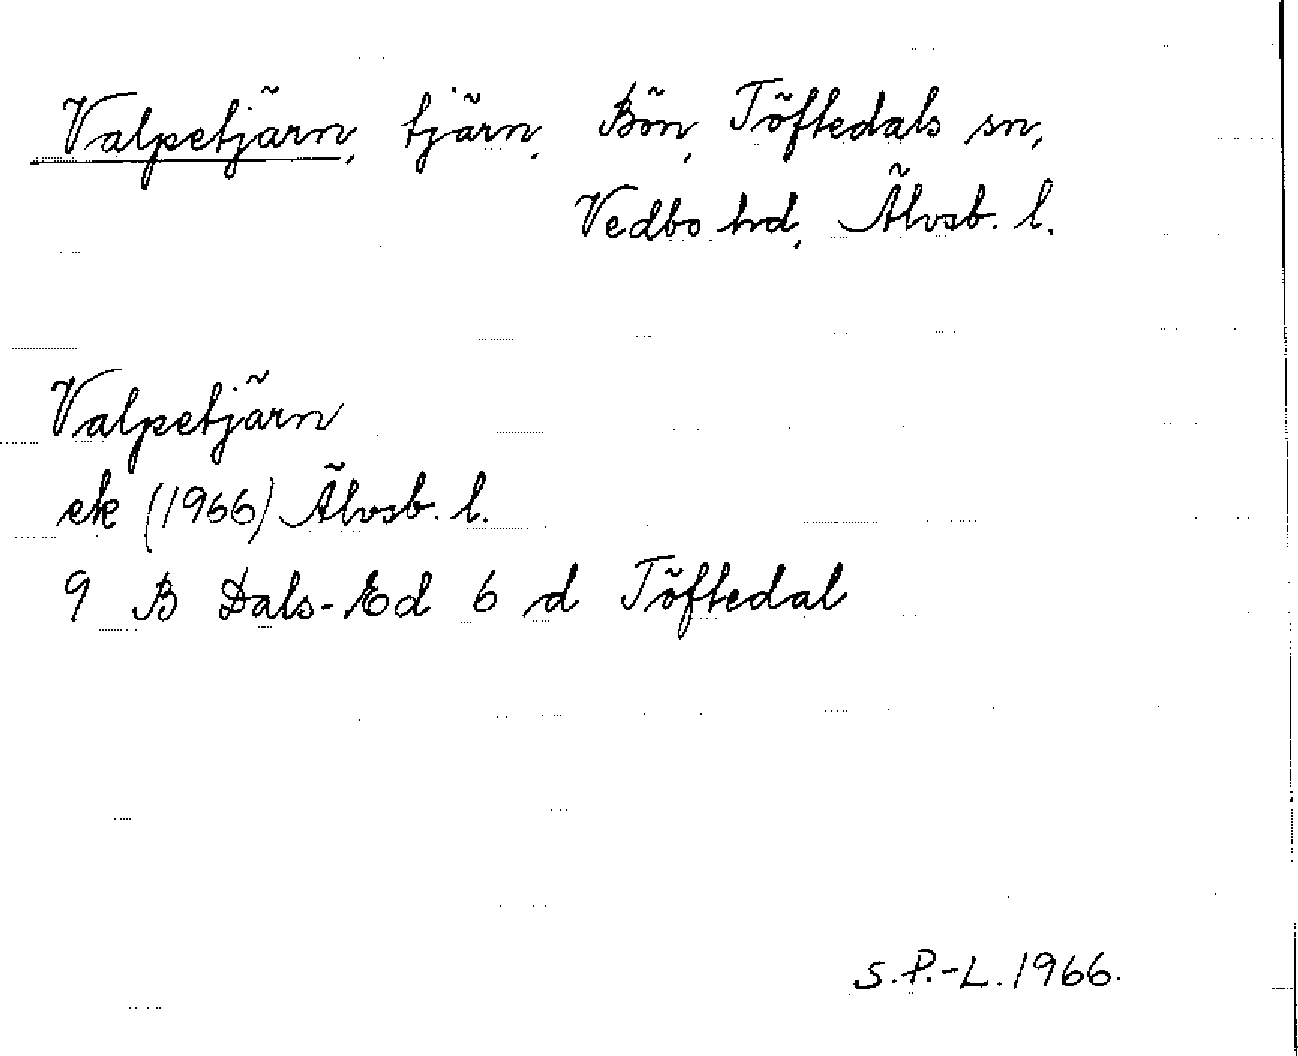 Valpetjärn, tjärn, Bön, Töftedals sn,
Vedbo hd, Älvsb. l.
Valpetjärn
ek (1966) Älvsb. l.
9 B Dals-Ed 6 d Töftedal
S.P.-L. 1966.